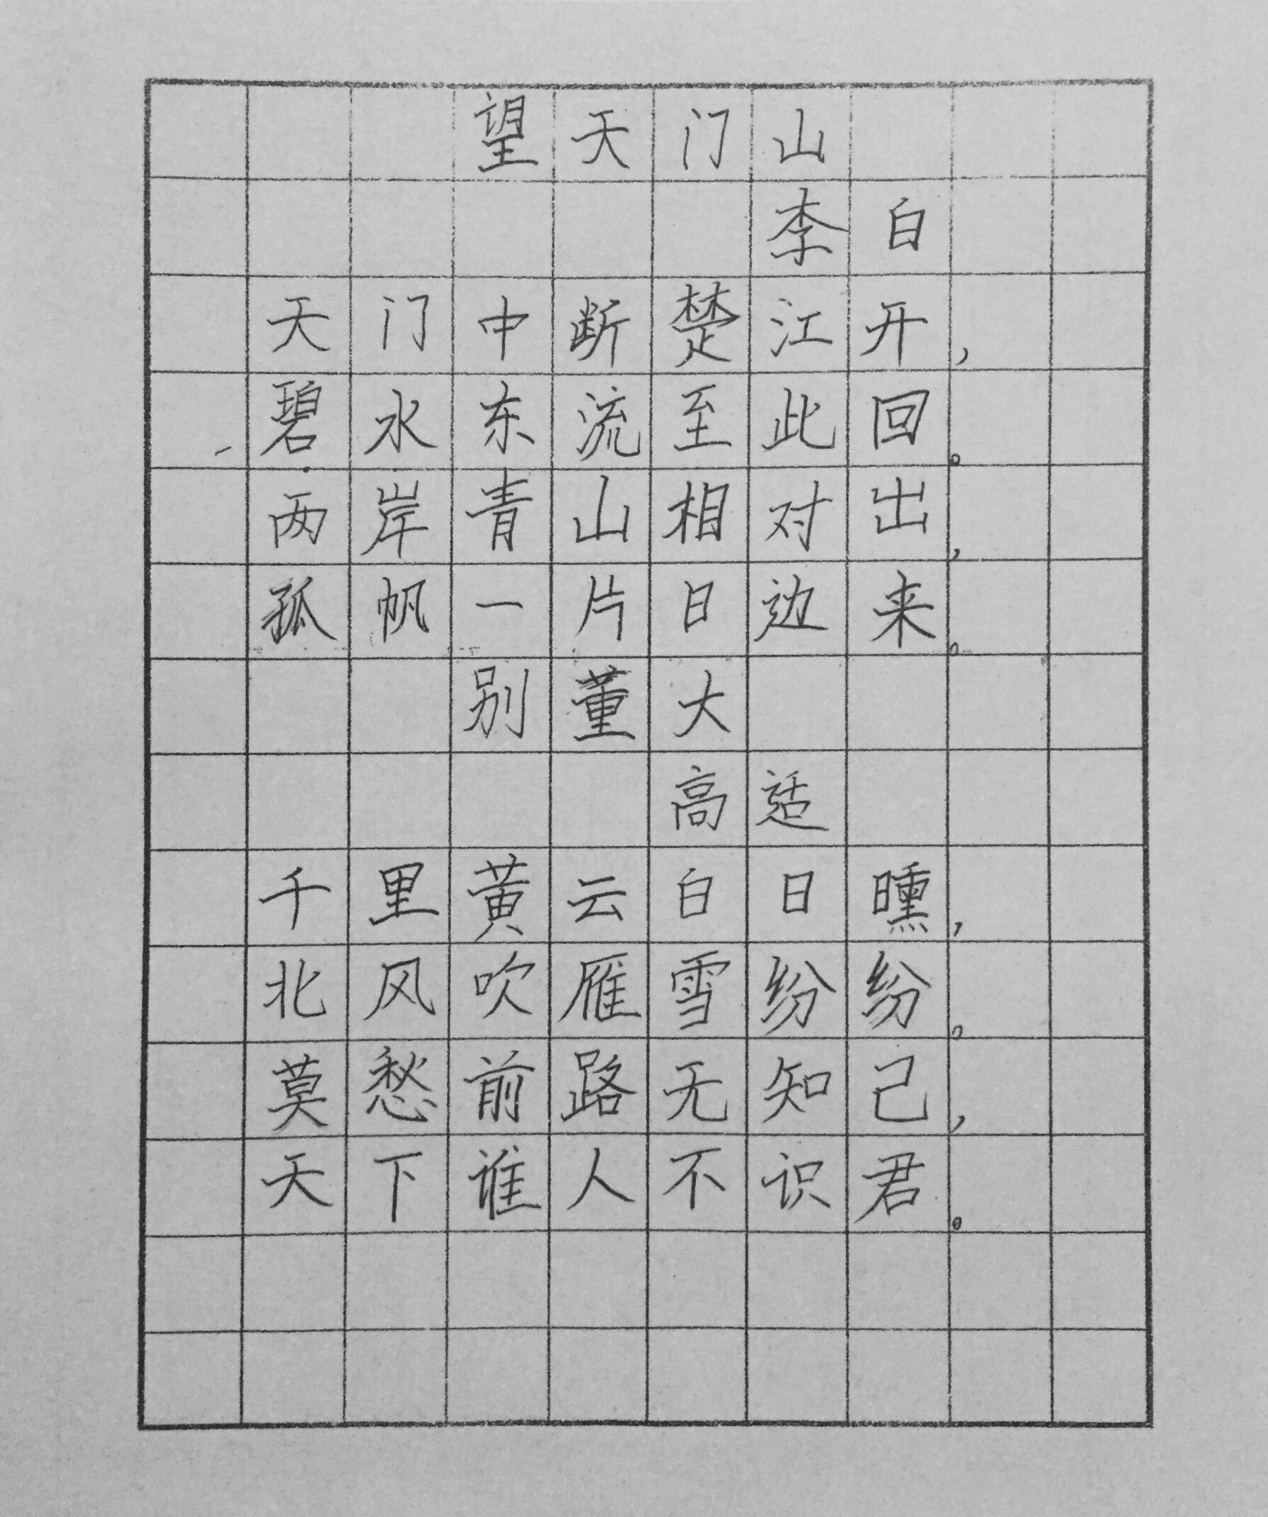 望天门山
李白
天门中断楚江开，
碧水东流至此回。
两岸青山相对出，
孤帆一片日边来。
别董大
高适
千里黄云白日曛，
北风吹雁雪纷纷。
莫愁前路无知己，
天下谁人不识君。